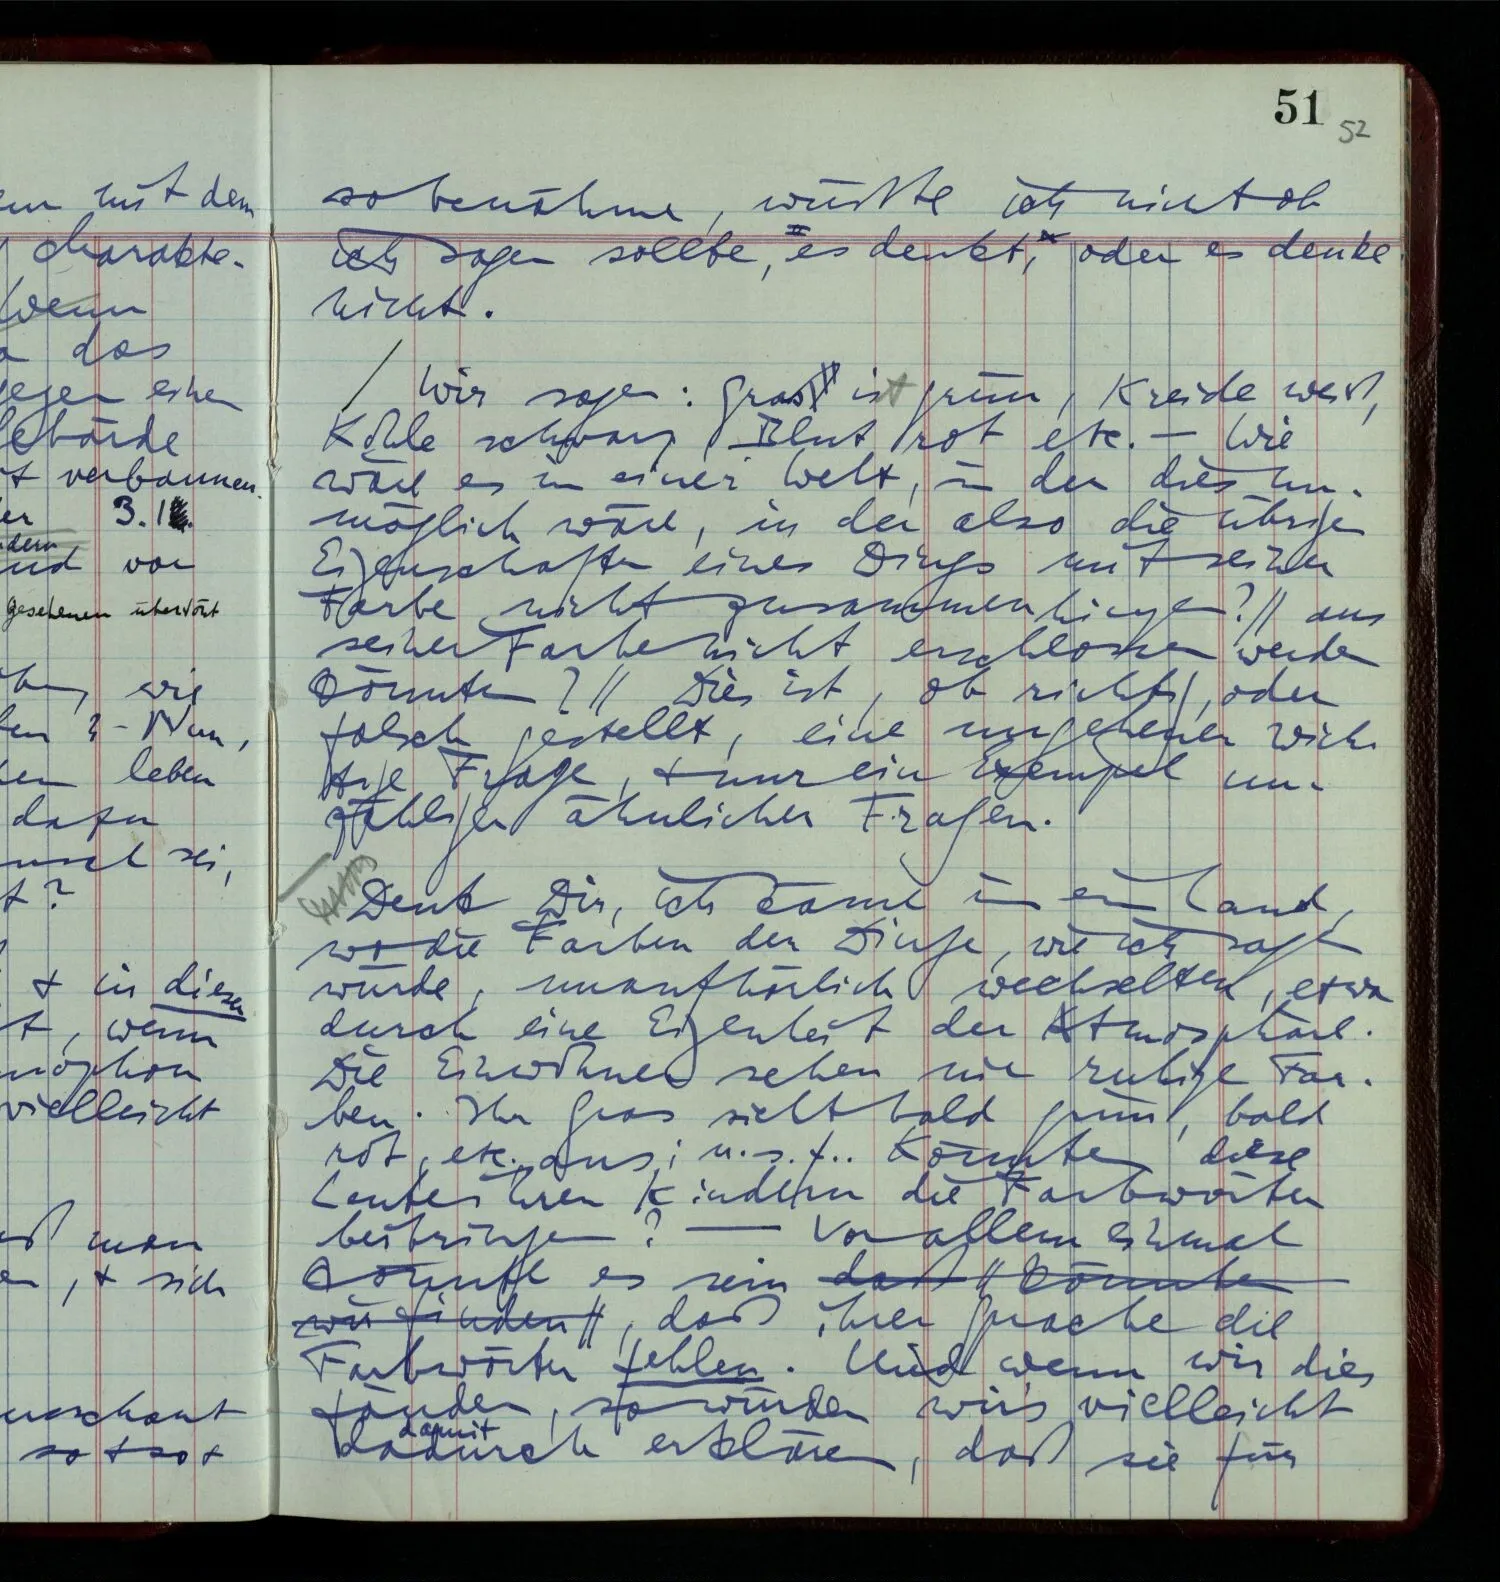 51
52
so benähme, wüßte ich nicht ob
ich sagen sollte, "es denkt", oder es denke
nicht.
/ Wir sagen: Gras ist grün, Kreide weiß,
Kohle schwarz, Blut rot etc. — Wie
wäre es in einer Welt, in der dies un-
möglich wäre, in der also die übrigen
Eigenschaften eines Dings mit seiner
Farbe nicht zusammenhingen? // aus
seiner Farbe nicht erschlossen werden
könnten? // Dies ist, ob richtig, oder
falsch gestellt, eine ungeheuer wich-
tige Frage, + nur ein Exempel un-
zähliger ähnlicher Fragen.
Denk Dir, ich käme in ein Land,
wo die Farben der Dinge, wie ich sagen
würde, unaufhörlich wechselten, etwa
durch eine Eigenheit der Atmosphäre.
Die Einwohner sehen nie ruhige Far-
ben. Ihr Gras sieht bald grün, bald
rot, etc. aus; u.s.f.. Könnten diese
Leute ihren Kindern die Farbwörter
beibringen? — Vor allem einmal
könnte es sein daß // könnten
wir finden //, daß ihrer Sprache die
Farbwörter fehlen. Und wenn wir dies
fänden, so würden wir's vielleicht
damit
dadurch erklären, daß sie für
mit dem
Charakte-
Wenn
das
gegen einen
Gebärde
verbannen.
3.
dern
und von
Gesehenen überhört
wie
? – Nun,
leben
dazu
sei,
t?
+ in diesem
t, wenn
vielleicht
man
, + sich
so + so +